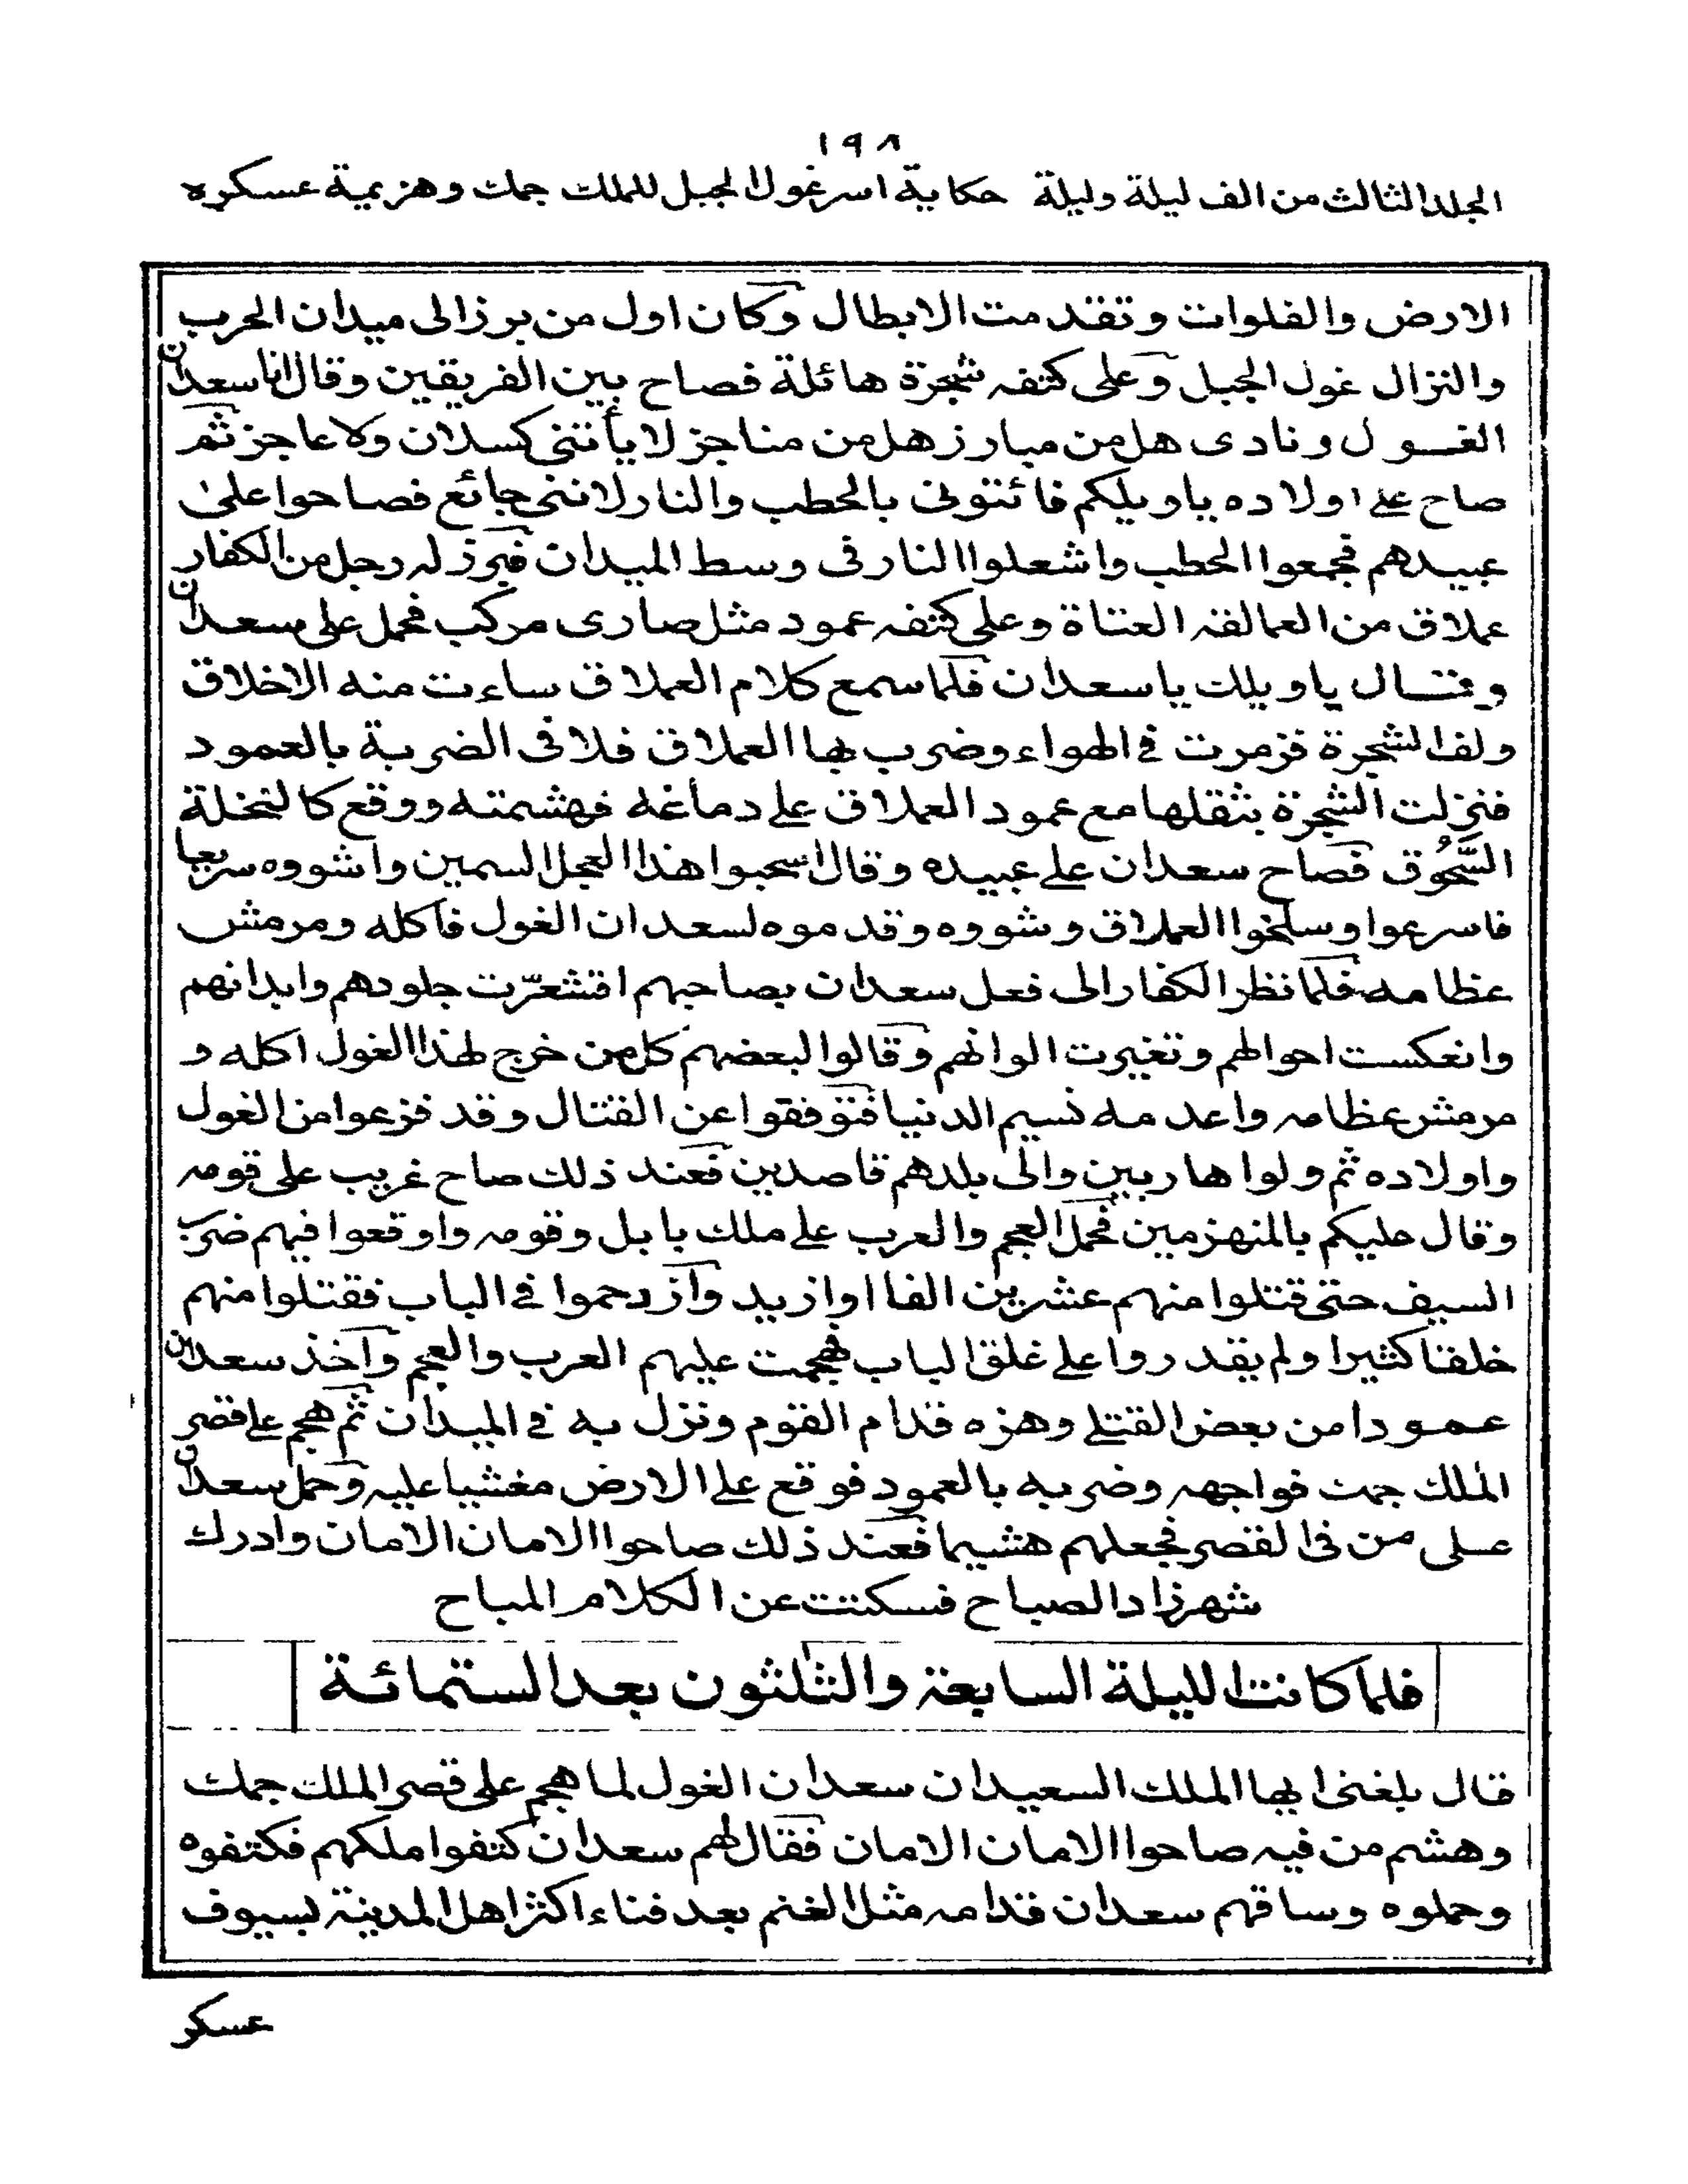 ١٩٨
الجلد الثالث من الف ليلة وليلة حكاية اسر غول الجبل للملك جمك وهزيمة عسكره
الارض والفلوات وتقدمت الابطال وكان اول من برز الى ميدان الحرب
والنزال غول الجبل وعلى كتفه شجرة هائلة فصاح بين الفريقين وقال انا سعدان
الغول ونادى هل من مبارز هل من مناجز لا يأتنى كسلان ولا عاجز ثم
صاح على اولاده ياويلكم فائتونى بالحطب والنار لاننى جائع فصاحوا على
عبيدهم فجمعوا الحطب واشعلوا النار فى وسط الميدان فبرز له رجل من الكفار
عملاق من العمالقه العتاة وعلى كتفه عمود مثل صارى مركب فحمل على سعدان
وقال ياويلك ياسعدان فلما سمع كلام العملاق ساءت منه الاخلاق
ولف الشجرة فزمرت فى الهواء وضرب بها العملاق فلاقى الضربة بالعمود
فنزلت الشجرة بثقلها مع عمود العملاق على دماغه فهشمته ووقع كالنخلة
السَّحُوق فصاح سعدان على عبيده وقال اسحبوا هذا العجل السمين واشووه سريعا
فاسرعوا وسلخوا العملاق وشووه وقدموه لسعدان الغول فاكله ومرمش
عظامه فلما نظر الكفار الى فعل سعدان بصاحبهم اقشعرّت جلودهم وابدانهم
وانعكست احوالهم وتغيرت الوانهم وقالوا لبعضهم كل من خرج لهذا الغول اكله و
مرمش عظامه واعدمه نسيم الدنيا فتوفقوا عن القتال وقد فزعوا من الغول
واولاده ثم ولوا هاربين والى بلدهم قاصدين فعند ذلك صاح غريب على قومه
وقال عليكم بالمنهزمين فحمل العجم والعرب على ملك بابل وقومه واوقعوا فيهم ضرب
السيف حتى قتلوا منهم عشرين الفا اوازيد وازدحموا فى الباب فقتلوا منهم
خلقا كثيرا ولم يقدروا على غلق الباب فهجمت عليهم العرب والعجم واخذ سعدان
عمودا من بعض القتلى وهزه قدام القوم ونزل به فى الميدان ثم هجم على قصر
الملك جمك فواجهه وضربه بالعمود فوقع على الارض مغشيا عليه وحمل سعدان
على من فى القصر فجعلهم هشيما فعند ذلك صاحوا الامان الامان وادرك
شهرزاد الصباح فسكتت عن الكلام المباح
فلما كانت الليلة السابعة والثلثون بعد الستمائة
قال بلغنى ايها الملك السعيد ان سعدان الغول لما هجم على قصر الملك جمك
وهشم من فيه صاحوا الامان الامان فقال لهم سعدان كتفوا ملكهم فكتفوه
وحملوه وساقهم سعدان قدامه مثل الغنم بعد فناء اكثر اهل المدينة بسيوف
عسكر